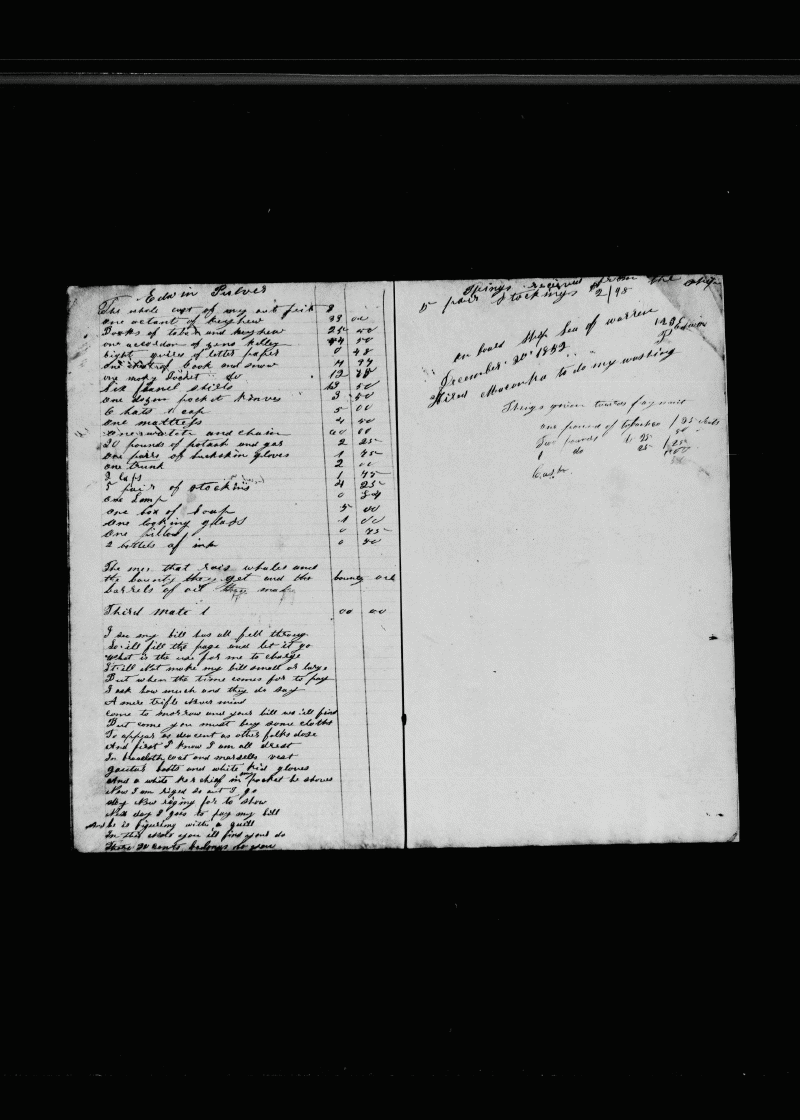 Edwin Pulver
The whole cost of my out fit $
one octant of keyhew 33 00
Books of tober and keyhew 25 00
one acordon of geno Kelley 44 50
Eight quires of letter paper 0 48
one chest of book and snow 4 97
one monky Jacket 12
Six flanel shirts 13 50
one dozen pocket knives 3 50
6 hats 1 cap 5 00
one mattress 4 50
one watch and chain 60 00
20 pounds of potash and gas 2 25
one pairs of buckskin gloves 1 75
one trunk 2 00
2 Caps 1 75
5 pair of stockins 4 25
one Lamp 0 54
one box of soap 5 00
one looking glass 1 00
one pillow 0 75
2 bottels of ink 0 50
The men that rais whales and
the bounty they get and the bounty oil
barrels of oil they make
Third mate 1 00 00
I see my bill has all fell throug
So ill fill the page and let it go
What is the use for me to charge
It ill Not make my bill small or large
But when the time comes for to pay
I ask how much and they do say
A mere trifle Never mind
come to morrow and your bill we ill find
But come you must buy some cloths
To appear as deacent as other folks dose
And first I know I am all drest
In broadcloth coat and marsells vest
gaiter boots and white kid gloves
And a white kerchief in pocket he shoves
Now I am riged so out I go
My New riging for to show
Next day I goes to pay my bill
And he is figuring with a quill
In this world you ill find your do
There 20 cents belongs to you
Things received from the ship
5 pair Stockings 2/98
on board Ship Sea of warren
December 20 1852
Hired to do my washing
Things given towards payment
one pound of tobacco / 25 cents
Two pounds 25
1 do 25
Cash